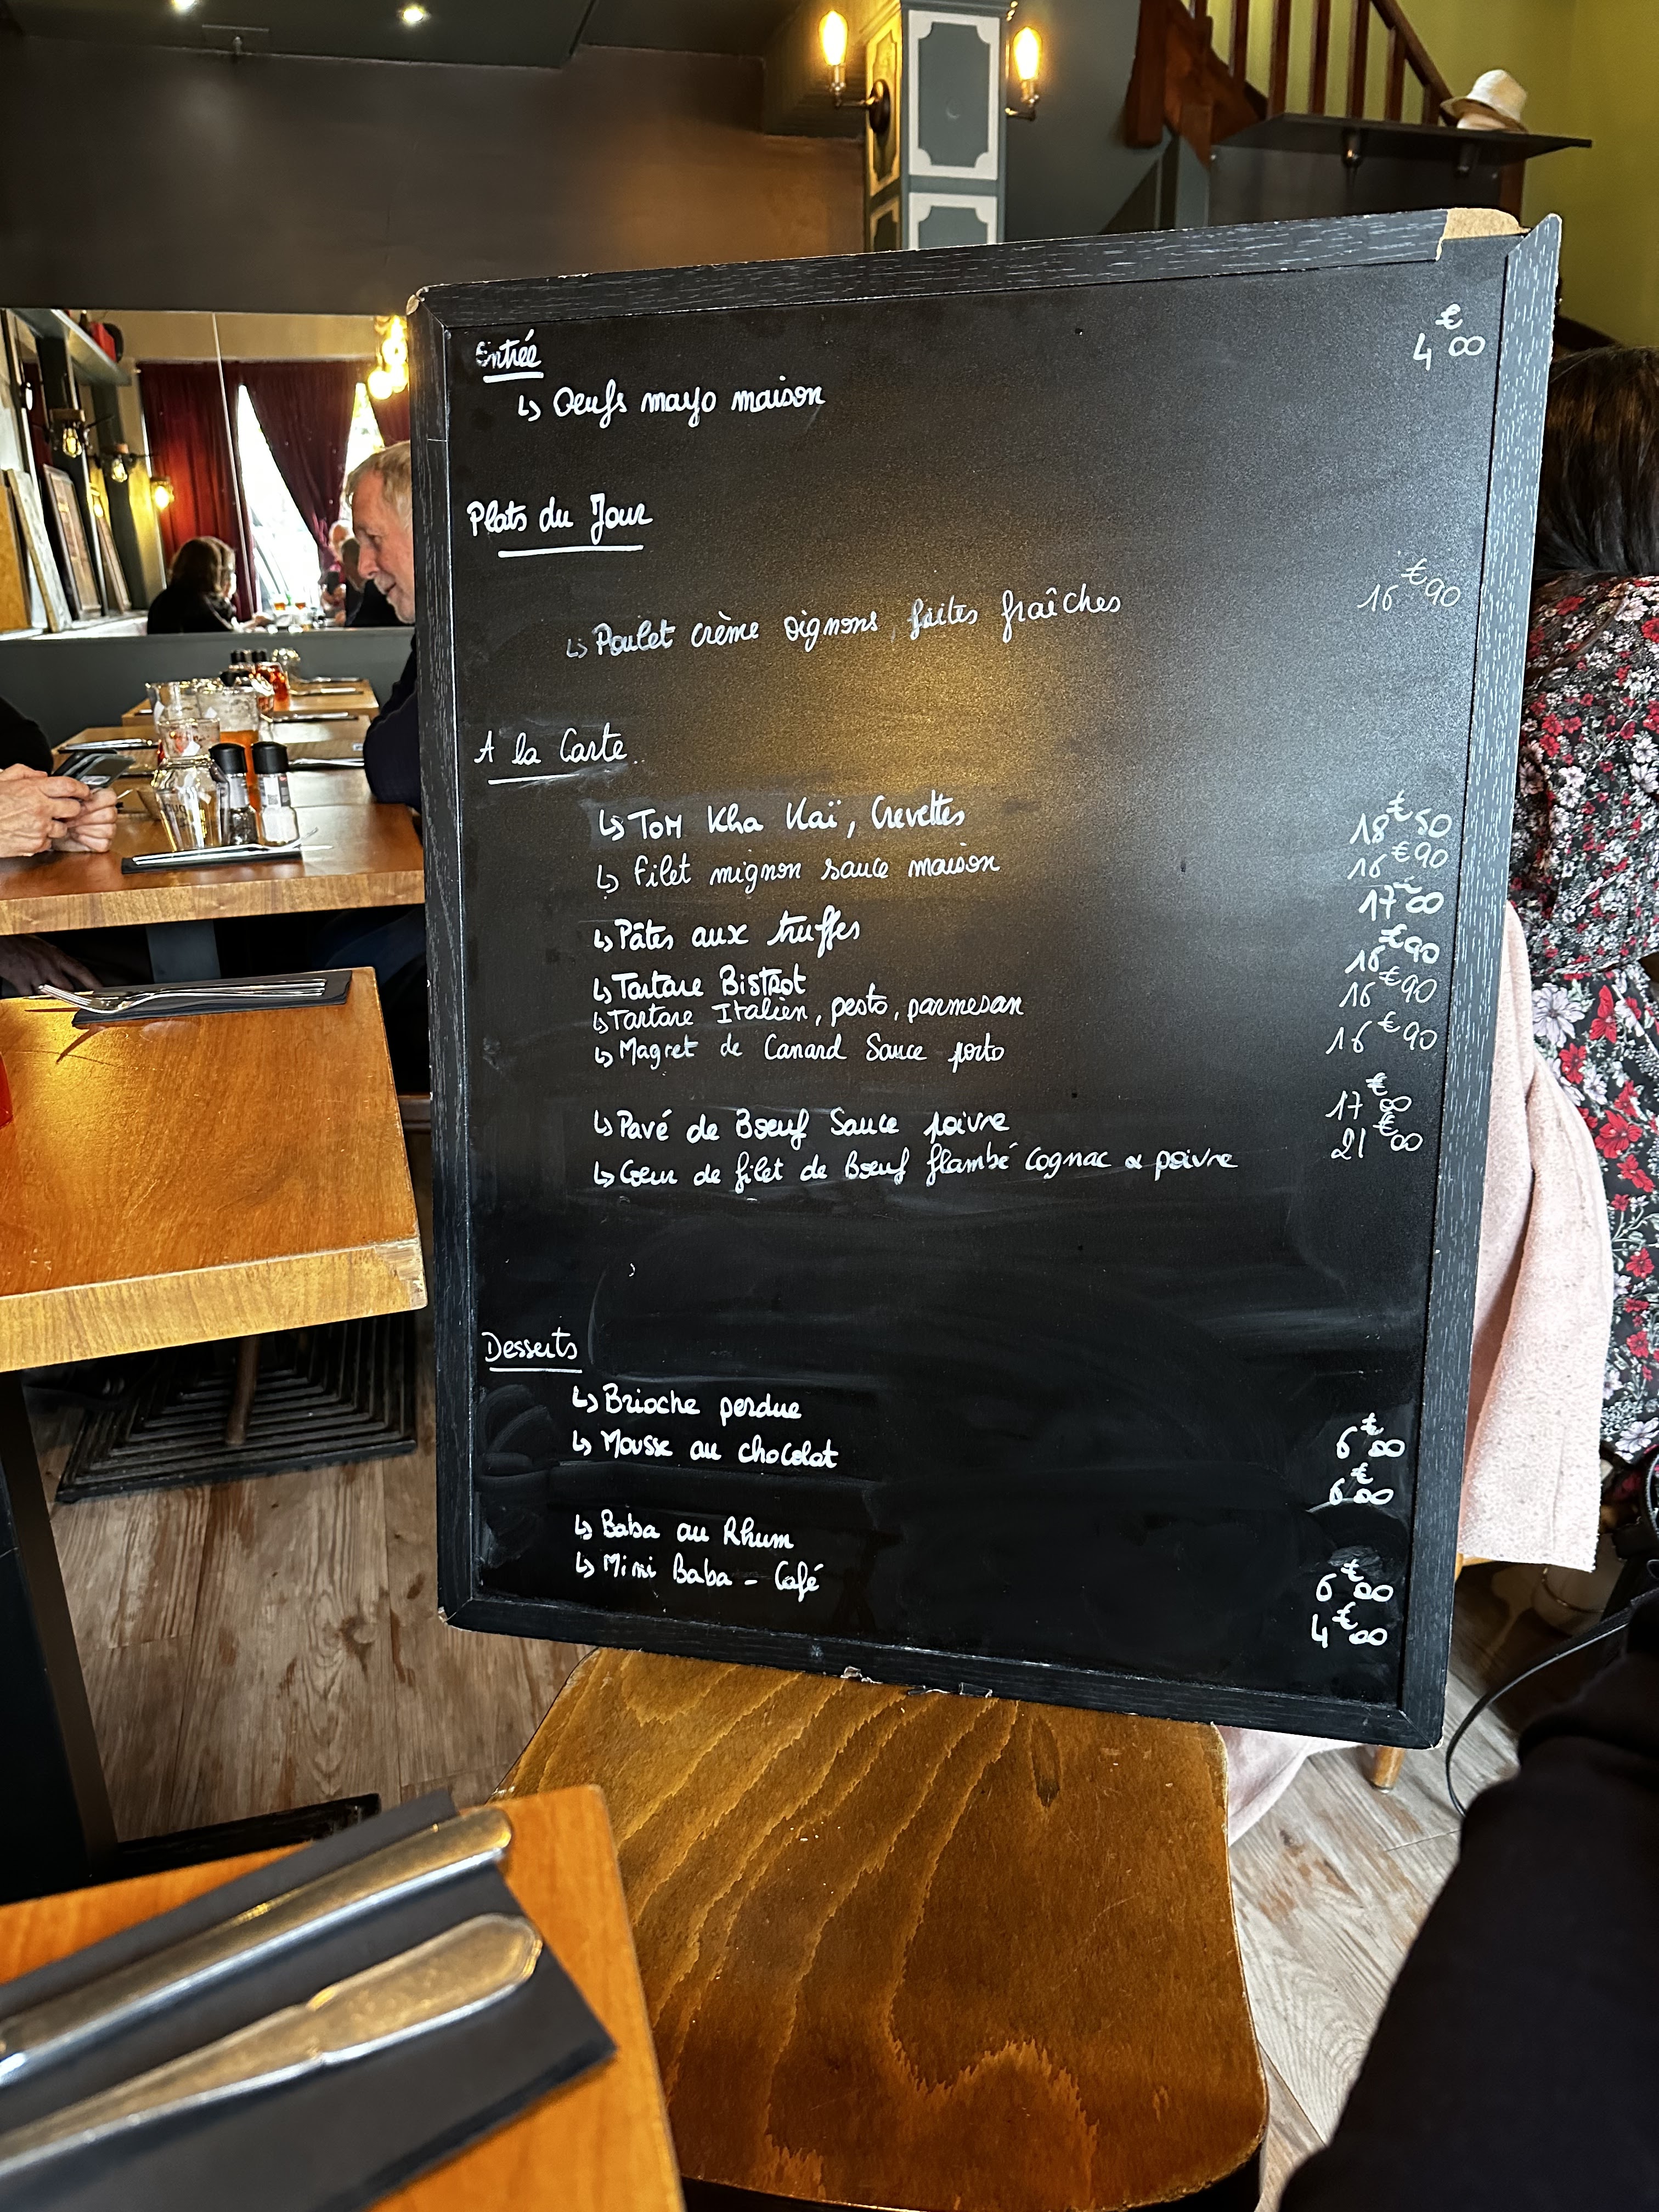 Entrée
↳ Oeufs mayo maison 4€00
Plats du Jour
↳ Poulet crème oignons, frites fraîches 16€90
A la Carte
↳ Tom Kha Kaï, Crevettes 18€50
↳ filet mignon sauce maison 16€90
↳ Pâtes aux truffes 17€00
↳ Tartare Bistrot 16€90
↳ Tartare Italien, pesto, parmesan 16€90
↳ Magret de Canard Sauce porto 16€90
↳ Pavé de Bœuf Sauce poivre 17€00
↳ Cœur de filet de Bœuf flambé cognac & poivre 21€00
Desserts
↳ Brioche perdue 6€00
↳ Mousse au chocolat 6€00
↳ Baba au Rhum 6€00
↳ Mini Baba - Café 4€00